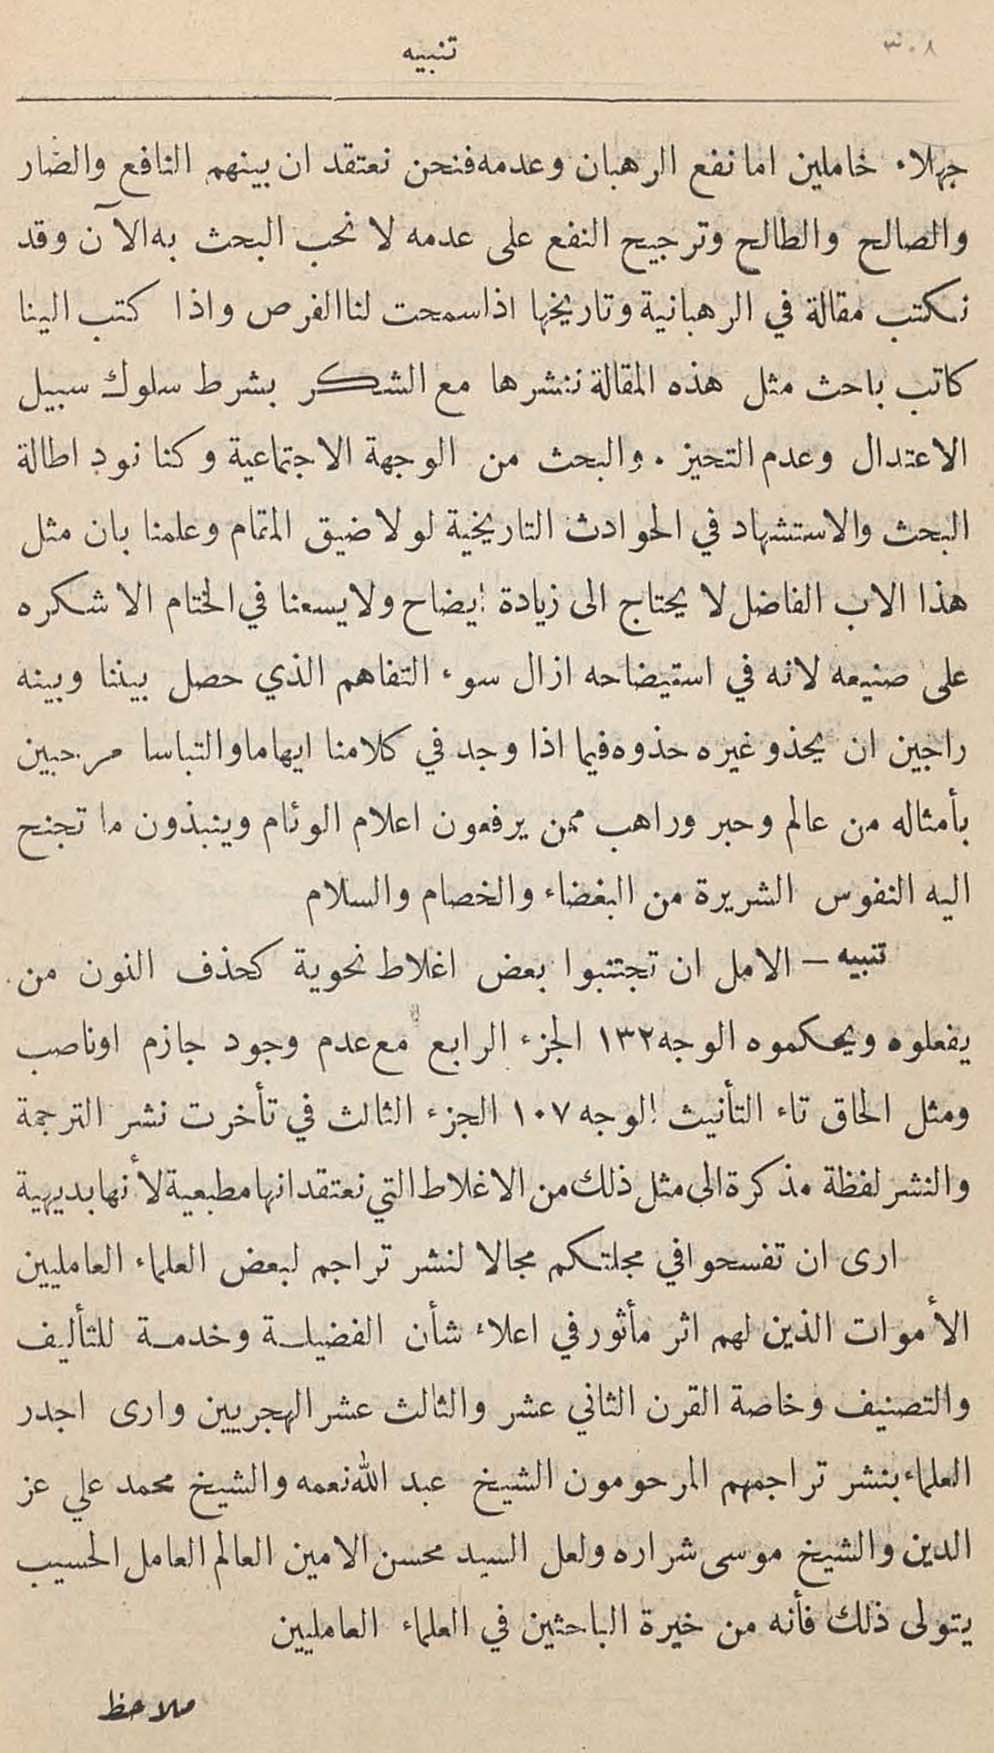 ٣٠٨
تنبيه
جهلاء خاملين اما نفع الرهبان وعدمه فنحن نعتقد ان بينهم النافع والضار
والصالح والطالح وترجيح النفع على عدمه لا نحب البحث به الآن وقد
نكتب مقالة في الرهبانية وتاريخها اذا سمحت لنا الفرص واذا كتب الينا
كاتب باحث مثل هذه المقالة ننشرها مع الشكر بشرط سلوك سبيل
الاعتدال وعدم التحيز . والبحث من الوجهة الاجتماعية وكنا نود اطالة
البحث والاستشهاد في الحوادث التاريخية لولا ضيق المقام وعلمنا بان مثل
هذا الاب الفاضل لا يحتاج الى زيادة ايضاح ولا يسعنا في الختام الا شكره
على صنيعه لانه في استيضاحه ازال سوء التفاهم الذي حصل بيننا وبينه
راجين ان يحذو غيره حذوه فيما اذا وجد في كلامنا ايهاما والتباسا مرحبين
بأمثاله من عالم وحبر وراهب ممن يرفعون اعلام الوئام وينبذون ما تجنح
اليه النفوس الشريرة من البغضاء والخصام والسلام
تنبيه – الامل ان تجتنبوا بعض اغلاط نحوية كحذف النون من
يفعلوه ويحكموه الوجه ١٣٢ الجزء الرابع مع عدم وجود جازم او ناصب
ومثل الحاق تاء التأنيث الوجه ١٠٧ الجزء الثالث في تأخرت نشر الترجمة
والنشر لفظة مذكرة الى مثل ذلك من الاغلاط التي نعتقد انها مطبعية لأنها بديهية
ارى ان تفسحوا في مجلتكم مجالا لنشر تراجم لبعض العلماء العامليين
الأموات الذين لهم اثر مأثور في اعلاء شأن الفضيلة وخدمة للتأليف
والتصنيف وخاصة القرن الثاني عشر والثالث عشر الهجريين وارى اجدر
العلماء بنشر تراجمهم المرحومون الشيخ عبد الله نعمه والشيخ محمد علي عز
الدين والشيخ موسى شراره ولعل السيد محسن الامين العالم العامل الحسيب
يتولى ذلك فأنه من خيرة الباحثين في العلماء العامليين
ملاحظ